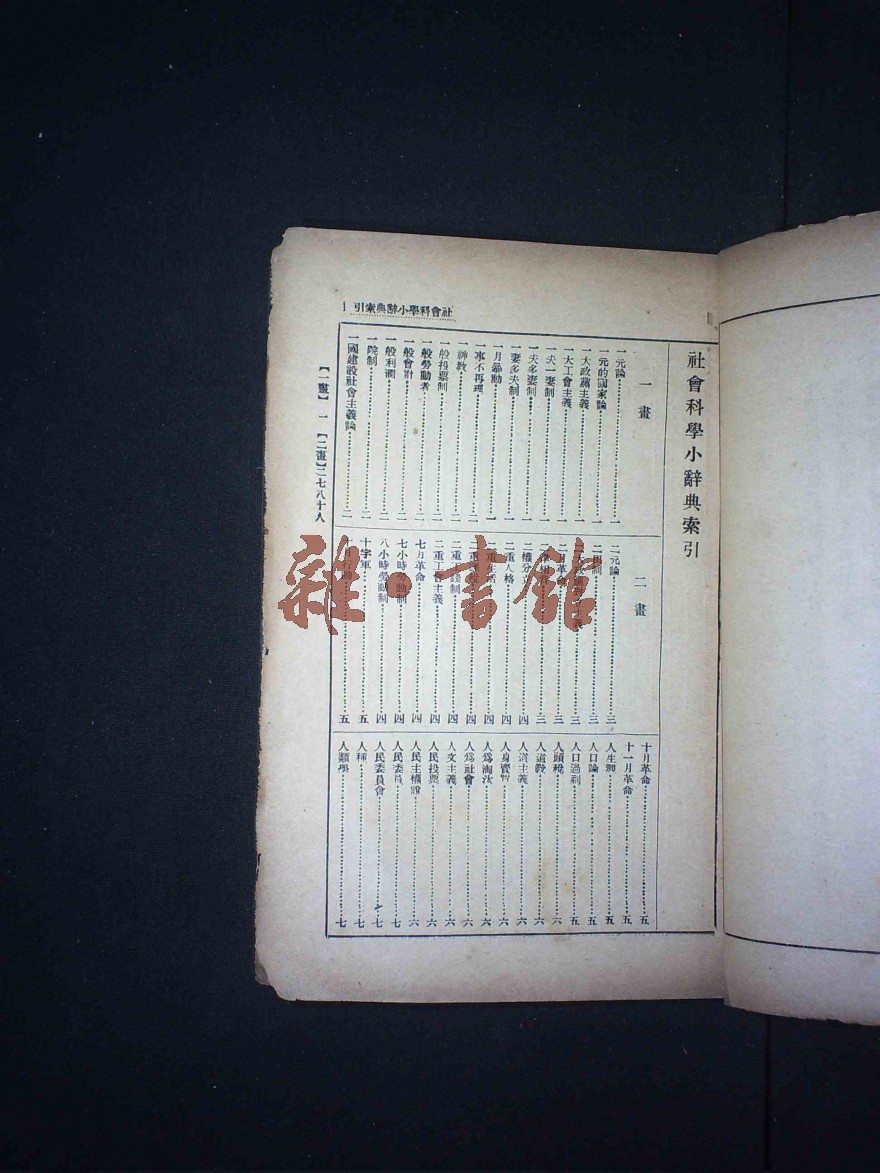 社會科學小辭典索引 1
社會科學小辭典索引
一畫
一元論 一
一元的國家論 一
一大政黨主義 一
一大工會主義 一
一夫一妻制 一
一夫多妻制 一
一妻多夫制 一
一月暴動 一
一事不再理 二
一神教 二
一般投票制 二
一般勞動者 二
一般會計 二
一般利潤 二
一院制 二
一國建設社會主義論 二
二畫
二元論 三
二
三
三
二月革 三
二
三
二權分立 四
二重人格 四
二重生活 四
二重
四
二重工錢制 四
二重工會主義 四
七月革命 四
七小時勞動制 四
八小時勞動制 四
十字軍 五
五
十月革命 五
十一月革命 五
人生觀 五
人口論 五
人口過剩 五
人頭稅 六
人道教 六
人道主義 六
人身賣買 六
人為淘汰 六
人為社會 六
人文主義 六
人民投票 六
人民主權說 六
人民委員 七
人民委員會 七
人種 七
人類學 七
【一畫】一 【二畫】二七八十人
雜·書館